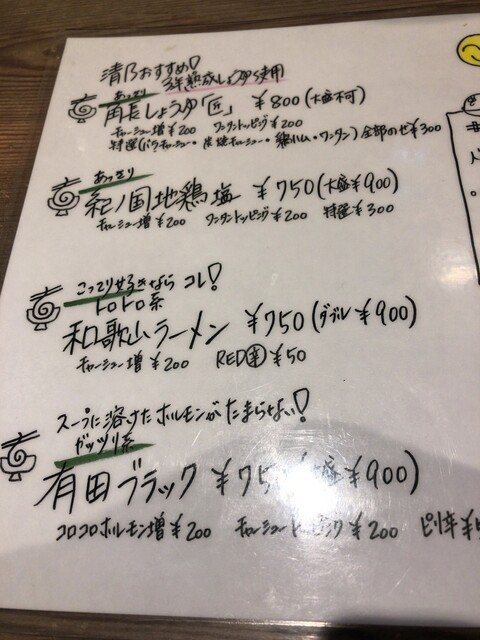 清乃おすすめ!
3年熟成しょうゆ使用
あっさり
角長しょうゆ「匠」 ¥800(大盛不可)
チャーシュー増¥200 ワンタントッピング¥200
特選(バラチャーシュー・炭焼チャーシュー・鶏ハム・ワンタン)全部のせ¥300
あっさり
紀ノ国地鶏塩 ¥750(大盛¥900)
チャーシュー増¥200 ワンタントッピング¥200 特選¥300
こってり好きなら コレ!
トロトロ系
和歌山ラーメン ¥750(ダブル¥900)
チャーシュー増¥200 RED辛¥50
スープに溶けたホルモンがたまらない!
ガッツリ系
有田ブラック ¥75 大盛¥900)
コロコロホルモン増¥200 チャーシュートッピング¥200 ピリ辛¥